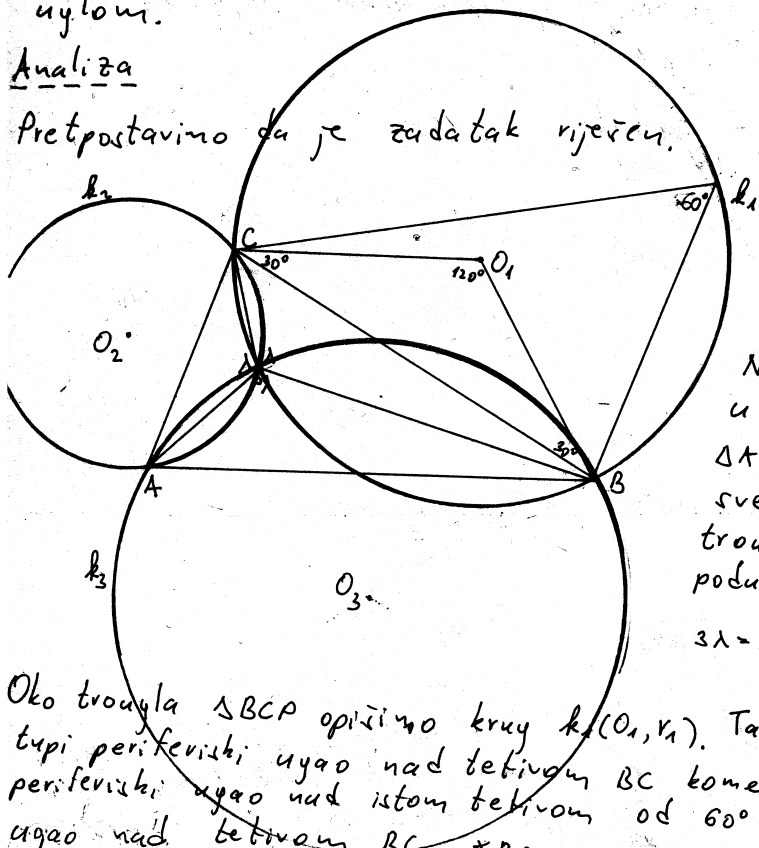 uglom.
Analiza
Pretpostavimo da je zadatak riješen.
k₂
k₁
60°
C
30°
O₁
120°
O₂
λ λ
λ
30°
A
B
u
ΔA
sve
trou
podu
k₃
O₃
3λ =
Oko trougla ΔBCP opišimo krug k₁(O₁,r₁). Ta
tupi periferiski ugao nad tetivom BC kome
periferiski ugao nad istom tetivom od 60°
ugao nad tetivom BC